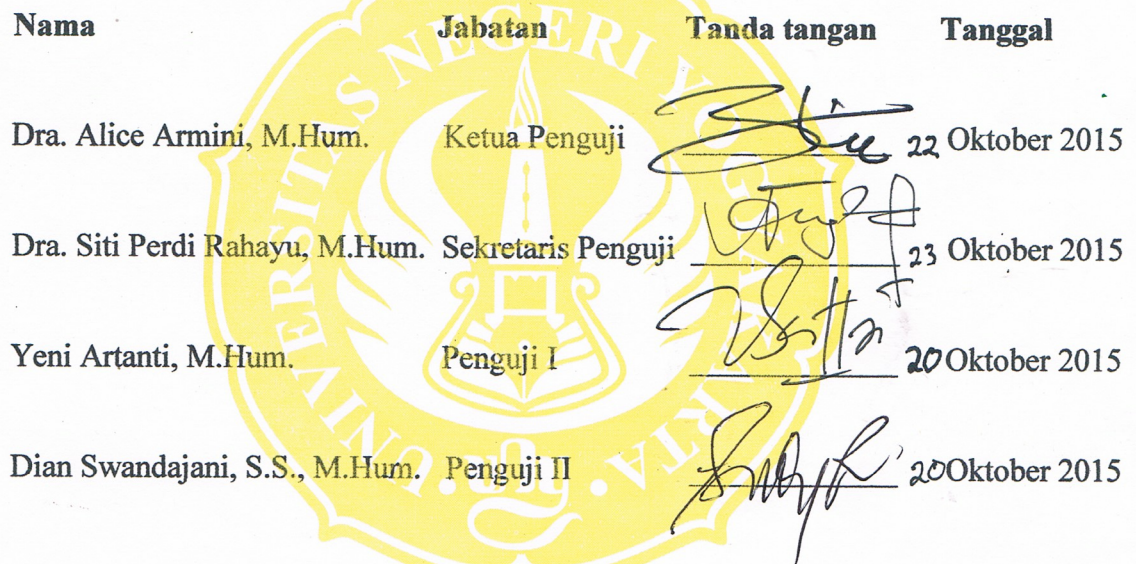 Nama Jabatan Tanda tangan Tanggal
Dra. Alice Armini, M.Hum. Ketua Penguji 22 Oktober 2015
Dra. Siti Perdi Rahayu, M.Hum. Sekretaris Penguji 23 Oktober 2015
Yeni Artanti, M.Hum. Penguji I 20 Oktober 2015
Dian Swandajani, S.S., M.Hum. Penguji II 20 Oktober 2015
UNIVERSITAS NEGERI YOGYAKARTA